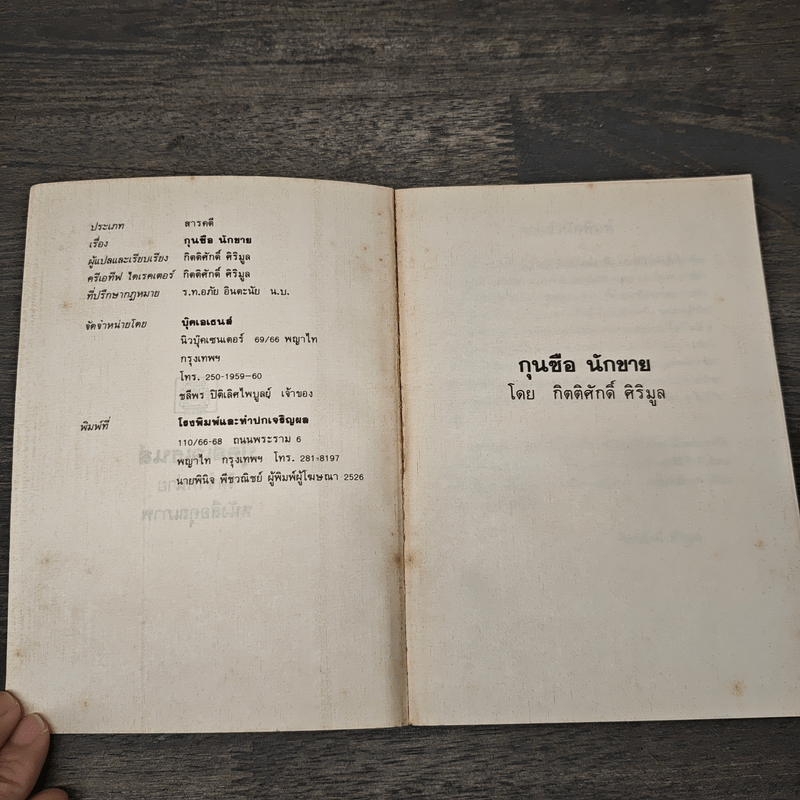 ประเภท สารคดี
เรื่อง กุนซือ นักขาย
ผู้แปลและเรียบเรียง กิตติศักดิ์ ศิริมูล
ครีเอทีฟ ไดเรคเตอร์ กิตติศักดิ์ ศิริมูล
ที่ปรึกษากฎหมาย ร.ท.อภัย อินตะนัย น.บ.
จัดจำหน่ายโดย บุ๊คเอเธนส์
นิวบุ๊คเซนเตอร์ 69/66 พญาไท
กรุงเทพฯ
โทร. 250-1959-60
ชลีพร ปิติเลิศไพบูลย์ เจ้าของ
พิมพ์ที่ โรงพิมพ์และทำปกเจริญผล
110/66-68 ถนนพระราม 6
พญาไท กรุงเทพฯ โทร. 281-8197
นายพินิจ พีชวณิชย์ ผู้พิมพ์ผู้โฆษณา 2526
กุนซือ นักขาย
โดย กิตติศักดิ์ ศิริมูล